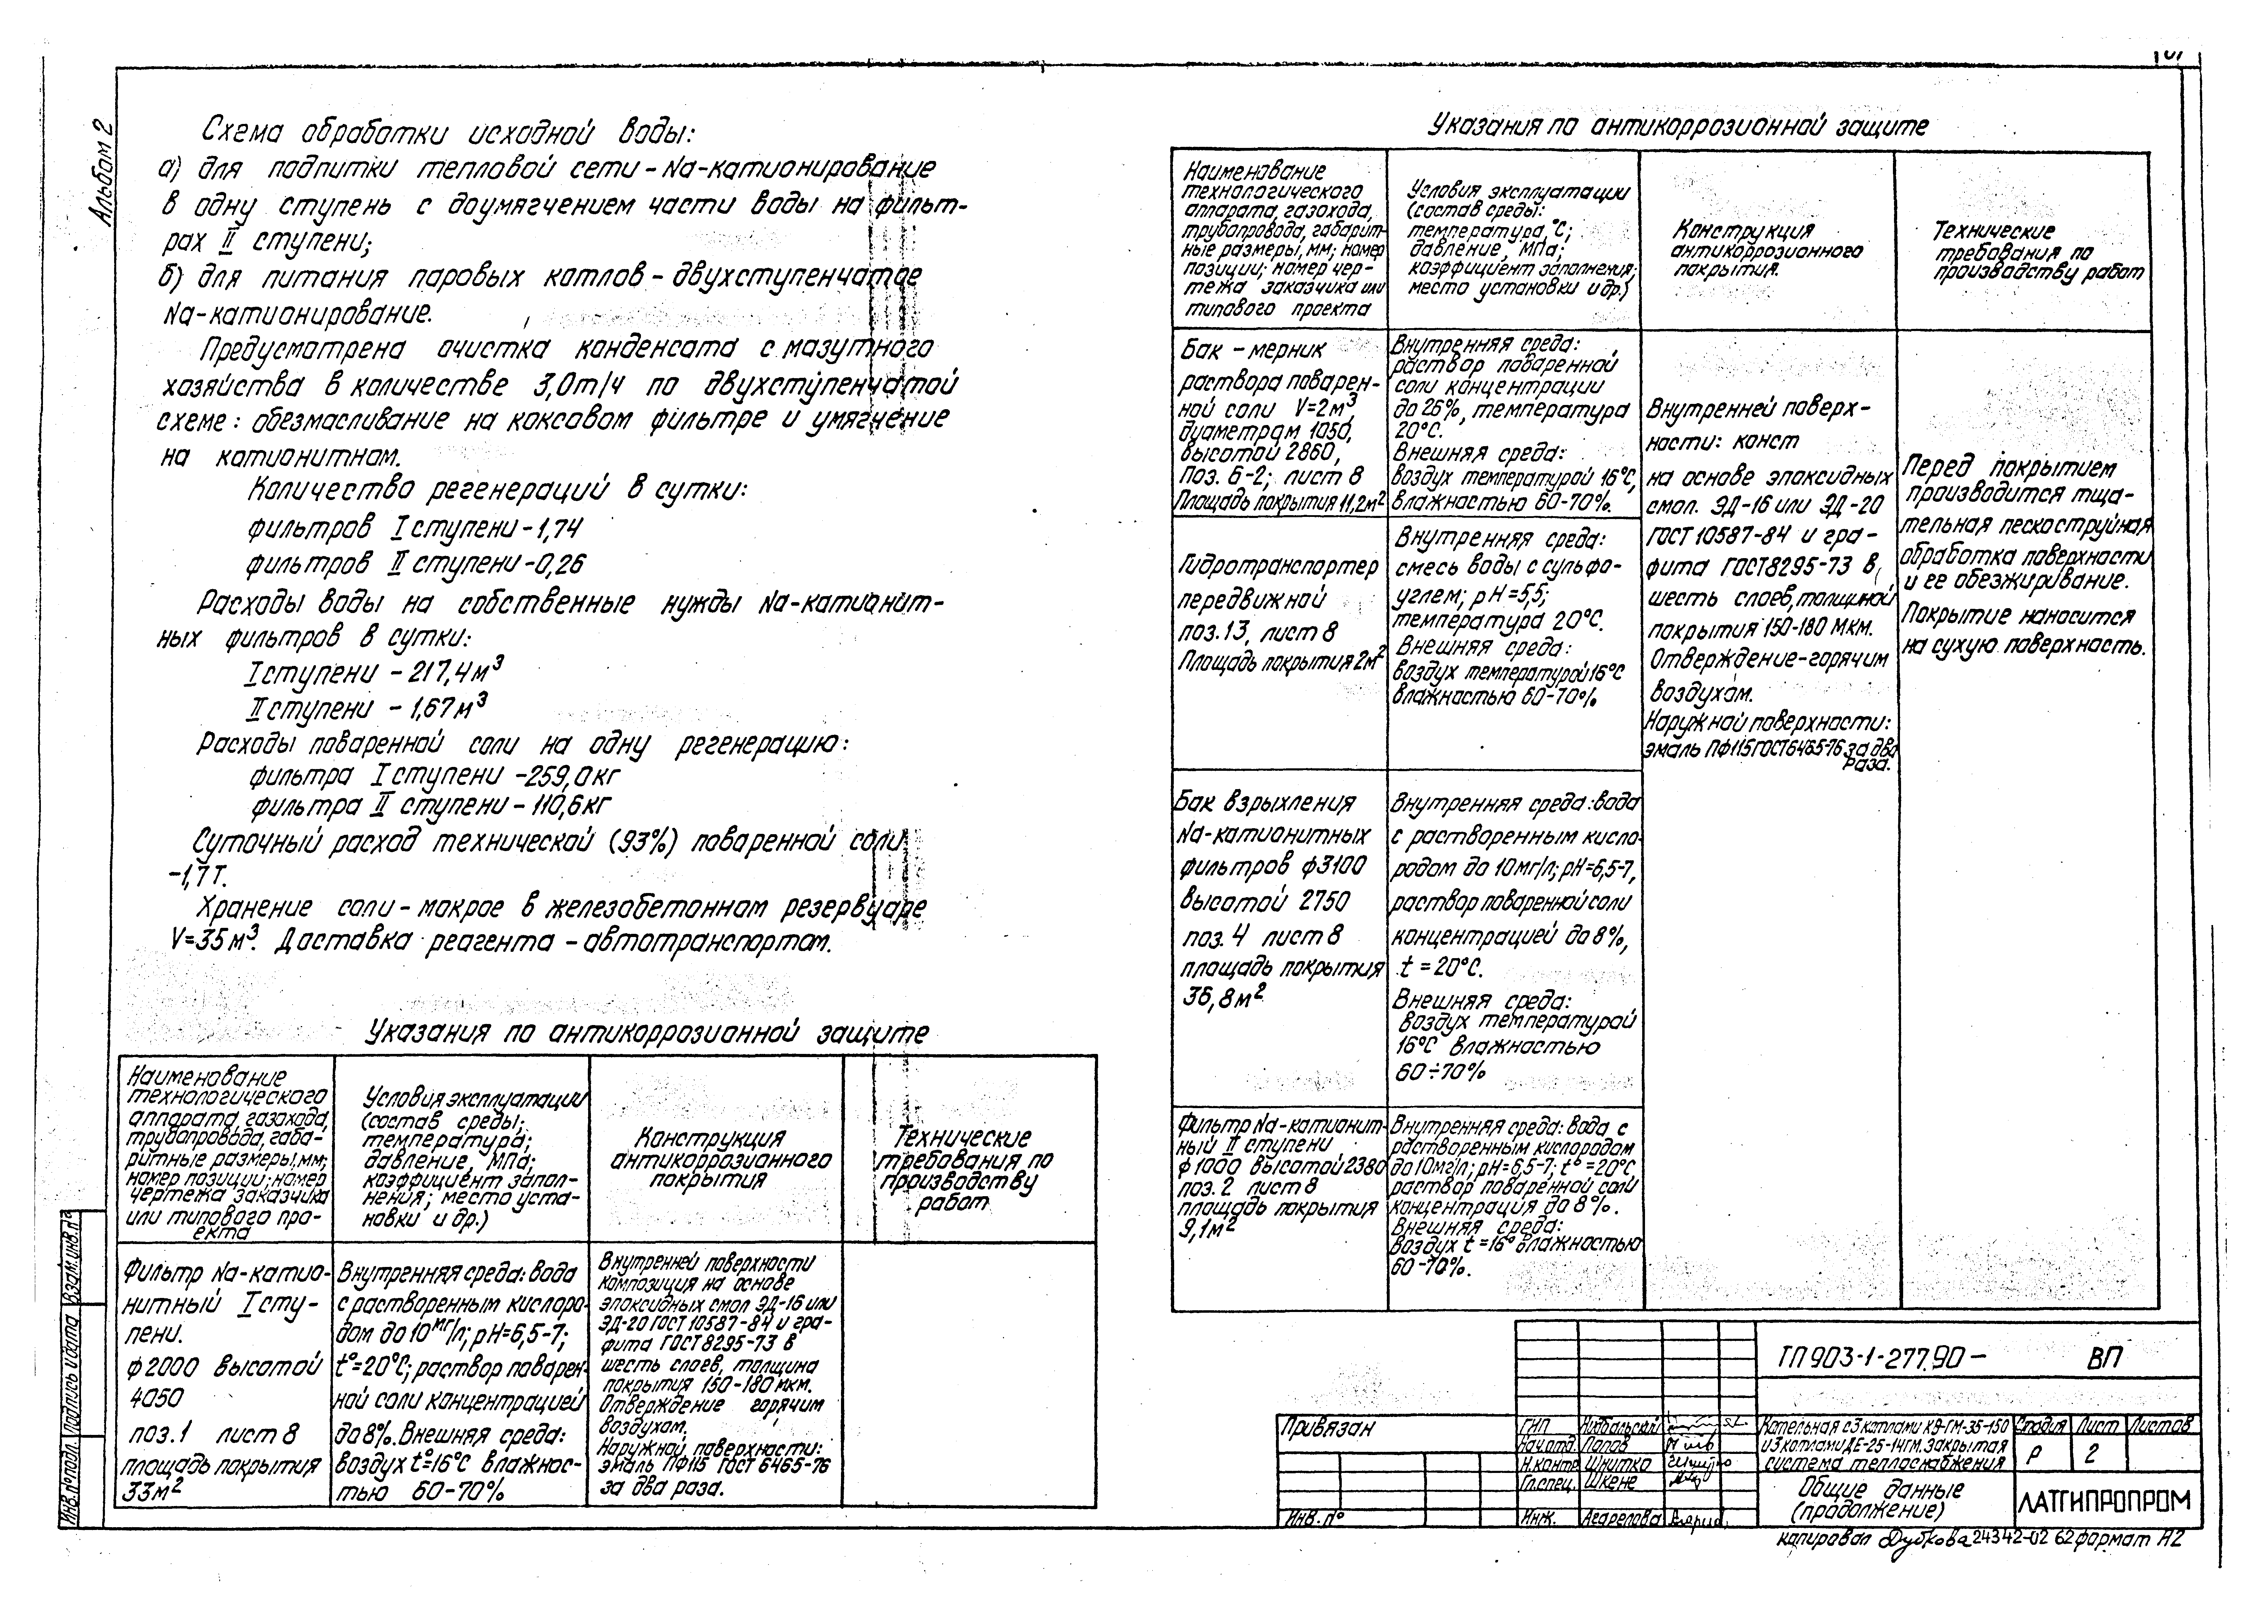 Альбом 2
Схема обработки исходной воды:
а) для подпитки тепловой сети - Na-катионирование
в одну ступень с доумягчением части воды на фильт-
рах II ступени;
б) для питания паровых котлов - двухступенчатое
Na-катионирование.
Предусмотрена очистка конденсата с мазутного
хозяйства в количестве 3,0т/ч по двухступенчатой
схеме: обезмасливание на коксовом фильтре и умягчение
на катионитном.
Количество регенераций в сутки:
фильтров I ступени - 1,74
фильтров II ступени - 0,26
Расходы воды на собственные нужды Na-катионит-
ных фильтров в сутки:
I ступени - 217,4 м³
II ступени - 1,67 м³
Расходы поваренной соли на одну регенерацию:
фильтра I ступени - 259,0 кг
фильтра II ступени - 110,6 кг
Суточный расход технической (93%) поваренной соли
-1,7 т.
Хранение соли - мокрое в железобетонном резервуаре
V=35 м³. Доставка реагента - автотранспортом.
Указания по антикоррозионной защите
Наименование
технологического
аппарата, газохода,
трубопровода, габа-
ритные размеры, мм;
номер позиции; номер
чертежа заказчика
или типового про-
екта
Условия эксплуатации
(состав среды;
температура;
давление, МПа;
коэффициент запол-
нения; место уста-
новки и др.)
Конструкция
антикоррозионного
покрытия
Технические
требования по
производству
работ
Фильтр Na-катио-
нитный I сту-
пени.
ф2000 высотой
4050
поз.1 лист 8
площадь покрытия
33м²
Внутренняя среда: вода
с растворенным кислоро-
дом до 10 мг/л; pH=6,5-7;
t°=20°C; раствор поварен-
ной соли концентрацией
до 8%. Внешняя среда:
воздух t°=16°C влажнос-
тью 60-70%
Внутренней поверхности
композиция на основе
эпоксидных смол ЭД-16 или
ЭД-20 ГОСТ 10587-84 и гра-
фита ГОСТ 8295-73 в
шесть слоев, толщина
покрытия 150-180 мкм.
Отверждение горячим
воздухом.
Наружной поверхности:
эмаль ПФ115 ГОСТ 6465-76
за два раза.
Указания по антикоррозионной защите
Наименование
технологического
аппарата, газохода,
трубопровода, габарит-
ные размеры, мм; номер
позиции; номер чер-
тежа заказчика или
типового проекта
Условия эксплуатации
(состав среды:
температура, °C;
давление, МПа;
коэффициент заполнения;
место установки и др.)
Конструкция
антикоррозионного
покрытия.
Технические
требования по
производству работ
Бак - мерник
раствора поварен-
ной соли V=2м³
диаметром 1050,
высотой 2860,
Поз. 6-2; лист 8
Площадь покрытия 11,2м²
Внутренняя среда:
раствор поваренной
соли концентрации
до 26%, температура
20°C.
Внешняя среда:
воздух температурой 16°C,
влажностью 60-70%.
Внутренней поверх-
ности: конст
на основе эпоксидных
смол. ЭД-16 или ЭД-20
ГОСТ 10587-84 и гра-
фита ГОСТ8295-73 в
шесть слоев, толщиной
покрытия 150-180 мкм.
Отверждение-горячим
воздухом.
Наружной поверхности:
эмаль ПФ115 ГОСТ6465-76 за два
раза.
Перед покрытием
производится тща-
тельная пескоструйная
обработка поверхности
и ее обезжиривание.
Покрытие наносится
на сухую поверхность.
Гидротранспортер
передвижной
поз. 13, лист 8
Площадь покрытия 2м²
Внутренняя среда:
смесь воды с сульфо-
углем; pH=5,5;
температура 20°C.
Внешняя среда:
воздух температурой 16°C
влажностью 60-70%
Бак взрыхления
Na-катионитных
фильтров ф3100
высотой 2750
поз. 4 лист 8
площадь покрытия
36,8м²
Внутренняя среда: вода
с растворенным кисло-
родом до 10мг/л; pH=6,5-7,
раствор поваренной соли
концентрацией до 8%,
t = 20°C.
Внешняя среда:
воздух температурой
16°C влажностью
60÷70%
Фильтр Na-катионит-
ный II ступени
ф1000 высотой 2380
поз. 2 лист 8
площадь покрытия
9,1м²
Внутренняя среда: вода с
растворенным кислородом
до 10мг/л; pH=6,5-7; t°=20°C
раствор поваренной соли
концентрация до 8%.
Внешняя среда:
воздух t=16° влажностью
60-70%.
Взам.инв.№
Подпись и дата
Инв.№ подл.
ТП 903-1-277.90- ВП
Привязан
Инв. №
ГИП
Нач.отд. Попов
Н.контр. Шнитко
Гл.спец. Шкене
Инж.
Котельная с 3 котлами КВ-ГМ-35-150
и 3 котлами ДЕ-25-14ГМ. Закрытая
система теплоснабжения
Стадия Лист Листов
Р 2
Общие данные
(продолжение)
ЛАТГИПРОПРОМ
копировал Дубкова 24342-02 62 формат А2